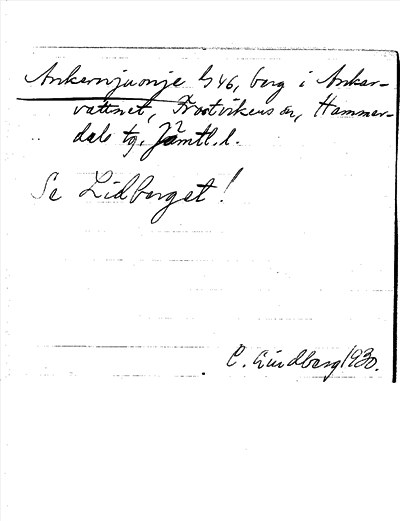 Ankernjuonje G 46, berg i Ankar-
vattnet, Frostvikens sn, Hammer-
dals tg. Jämtl. l.
Se Lidberget!
C. Lindberg 1930.